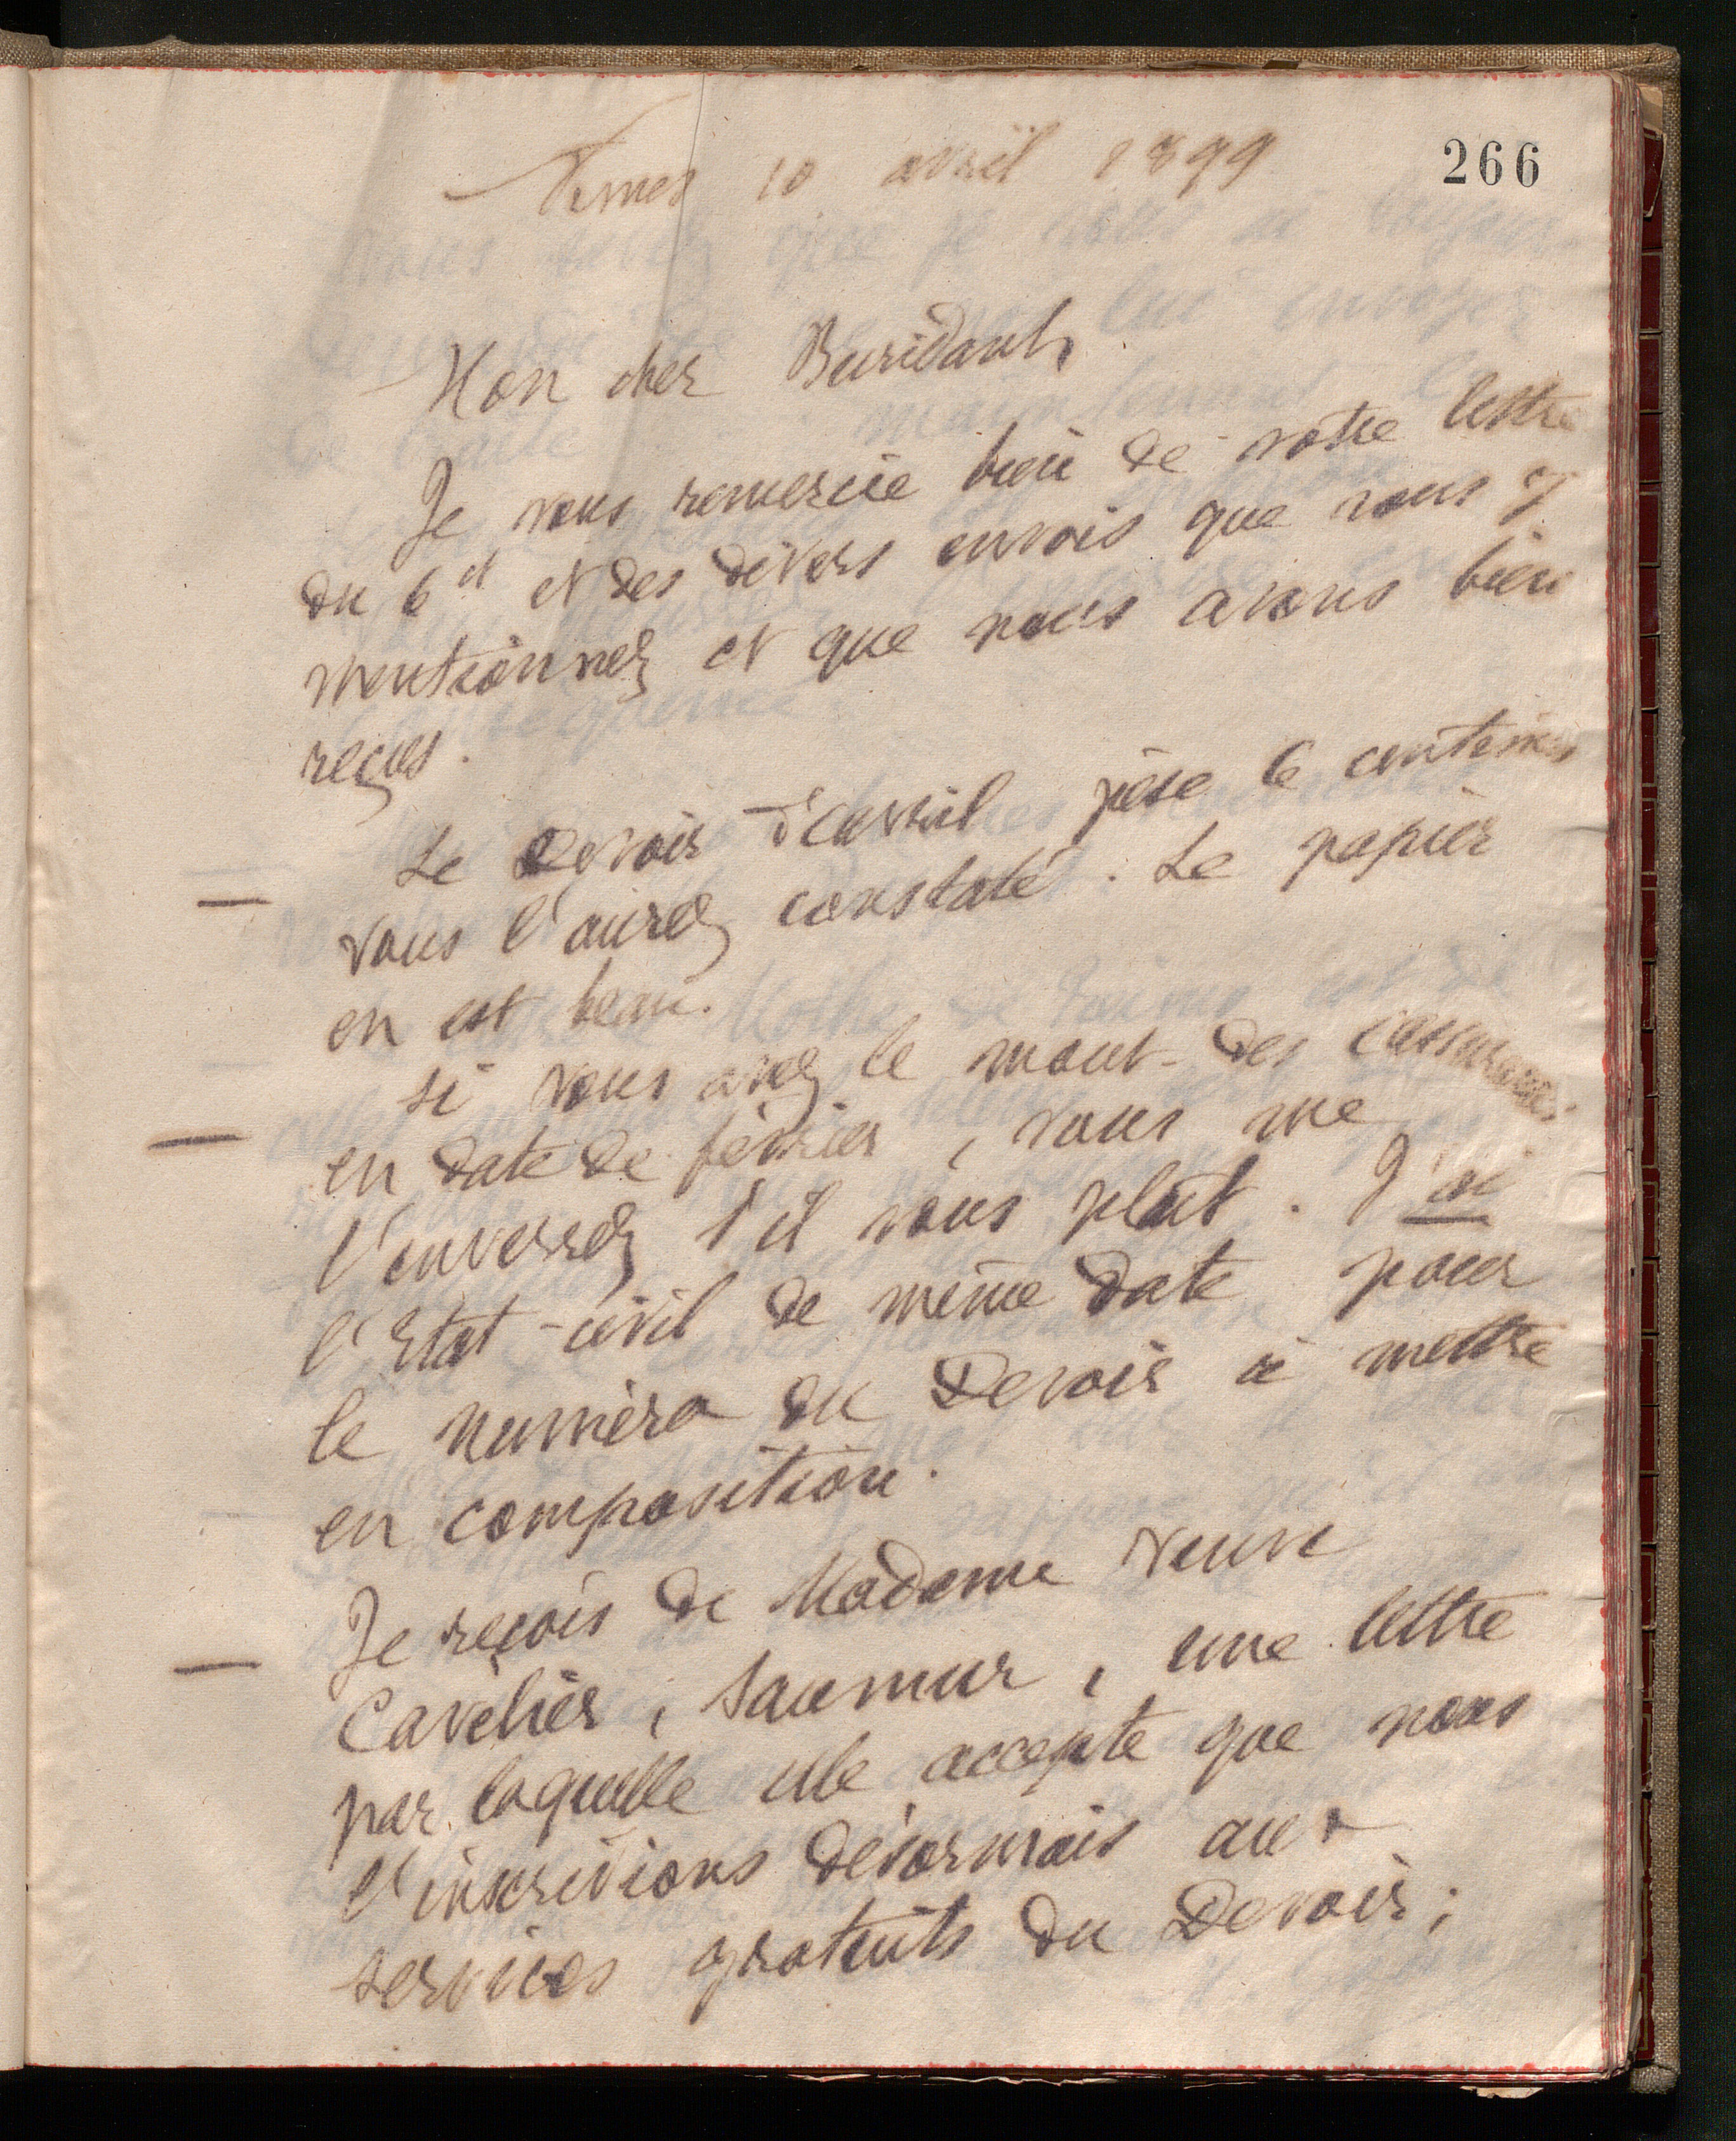 266
Nîmes 10 avril 1899
Mon cher Buridant,
Je vous remercie bien de votre lettre
du 6 ct et des divers envois que vous y
mentionnez et que nous avons bien
reçus.
— Le Devoir d'avril pèse 6 centimes
vous l'aurez constaté. Le papier
en est beau.
— Si vous avez le mouvt des assurances
en date de février, vous me
l'enverrez s'il vous plait. J'ai
l'Etat-civil de même date pour
le numéro du Devoir à mettre
en composition.
— Je reçois de Madame veuve
Cavelier, Saumur, une lettre
par laquelle elle accepte que nous
l'inscrivions désormais aux
services gratuits du Devoir;